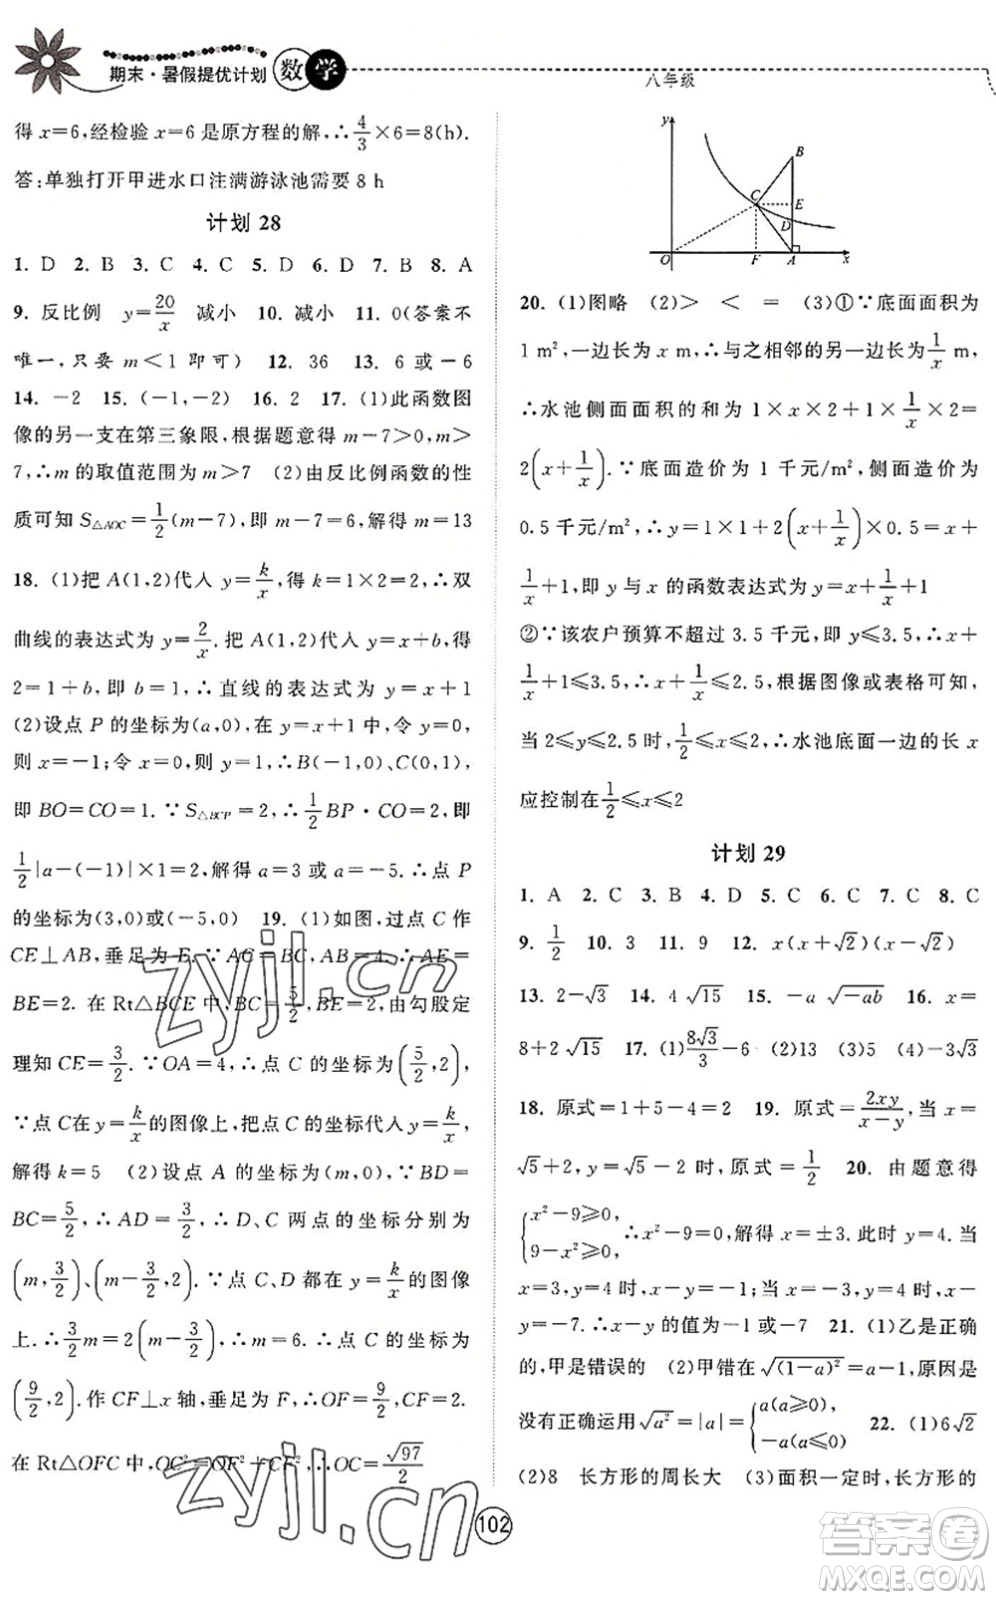 期末·暑假提优计划 数学
八年级
得 x=6,经检验 x=6 是原方程的解,∴4/3×6=8(h).
答:单独打开甲进水口注满游泳池需要 8 h
计划 28
1. D 2. B 3. C 4. C 5. D 6. D 7. B 8. A
9. 反比例 y=20/x 减小 10. 减小 11. 0(答案不
唯一,只要 m<1 即可) 12. 36 13. 6 或-6
14. -2 15. (-1,-2) 16. 2 17. (1)此函数图
像的另一支在第三象限,根据题意得 m-7>0,m>
7,∴m 的取值范围为 m>7 (2)由反比例函数的性
质可知 S△AOC=1/2(m-7),即 m-7=6,解得 m=13
18. (1)把 A(1,2)代人 y=k/x,得 k=1×2=2,∴双
曲线的表达式为 y=2/x. 把 A(1,2)代人 y=x+b,得
2=1+b,即 b=1,∴直线的表达式为 y=x+1
(2)设点 P 的坐标为(a,0),在 y=x+1 中,令 y=0,
则 x=-1;令 x=0,则 y=1,∴B(-1,0)、C(0,1),
即 BO=CO=1. ∵S△BCP=2,∴1/2BP·CO=2,即
1/2|a-(-1)|×1=2,解得 a=3 或 a=-5. ∴点 P
的坐标为(3,0)或(-5,0) 19. (1)如图,过点 C 作
CE⊥AB,垂足为 E. ∵AC=BC,AB=4,∴AE=
BE=2. 在 Rt△BCE 中,BC=5/2,BE=2,由勾股定
理知 CE=3/2. ∵OA=4,∴点 C 的坐标为(5/2,2).
∵点 C在y=k/x的图像上,把点 C 的坐标代人 y=k/x,
解得 k=5 (2)设点 A 的坐标为(m,0),∵BD=
BC=5/2,∴AD=3/2,∴D、C 两点的坐标分别为
(m,3/2)、(m-3/2,2). ∵点 C、D 都在 y=k/x 的图像
上,∴3/2m=2(m-3/2),∴m=6. ∴点 C 的坐标为
(9/2,2). 作 CF⊥x 轴,垂足为 F,∴OF=9/2,CF=2.
在 Rt△OFC 中,OC²=OF²+CF²,∴OC=√97/2
y
B
C
E
D
O
F
A
x
20. (1)图略 (2)> < = (3)①∵底面面积为
1 m²,一边长为 x m,∴与之相邻的另一边长为1/x m,
∴水池侧面面积的和为 1×x×2+1×1/x×2=
2(x+1/x). ∵底面造价为 1 千元/m²,侧面造价为
0.5 千元/m²,∴y=1×1+2(x+1/x)×0.5=x+
1/x+1,即 y 与 x 的函数表达式为 y=x+1/x+1
②∵该农户预算不超过 3.5 千元,即 y≤3.5,∴x+
1/x+1≤3.5,∴x+1/x≤2.5,根据图像或表格可知,
当 2≤y≤2.5 时,1/2≤x≤2,∴水池底面一边的长 x
应控制在1/2≤x≤2
计划 29
1. A 2. C 3. B 4. D 5. C 6. C 7. C 8. C
9. 1/2 10. 3 11. 9 12. x(x+√2)(x-√2)
13. 2-√3 14. 4√15 15. -a√-ab 16. x=
8+2√15 17. (1)8√3/3-6 (2)13 (3)5 (4)-3√3
18. 原式=1+5-4=2 19. 原式=2xy/x-y,当 x=
√5+2,y=√5-2 时,原式=1/2 20. 由题意得
{x²-9≥0, 9-x²≥0, ∴x²-9=0,解得 x=±3. 此时 y=4. 当
x=3,y=4 时,x-y=-1;当 x=-3,y=4 时,x-y
=-7. ∴x-y 的值为-1 或-7 21. (1)乙是正确
的,甲是错误的 (2)甲错在√(1-a)²=a-1,原因是
没有正确运用√a²=|a|={a(a≥0), -a(a≤0) 22. (1)6√2
(2)8 长方形的周长大 (3)面积一定时,长方形的
102
zyjl.cn
zyjl.cn
答案卷
MXQE.COM